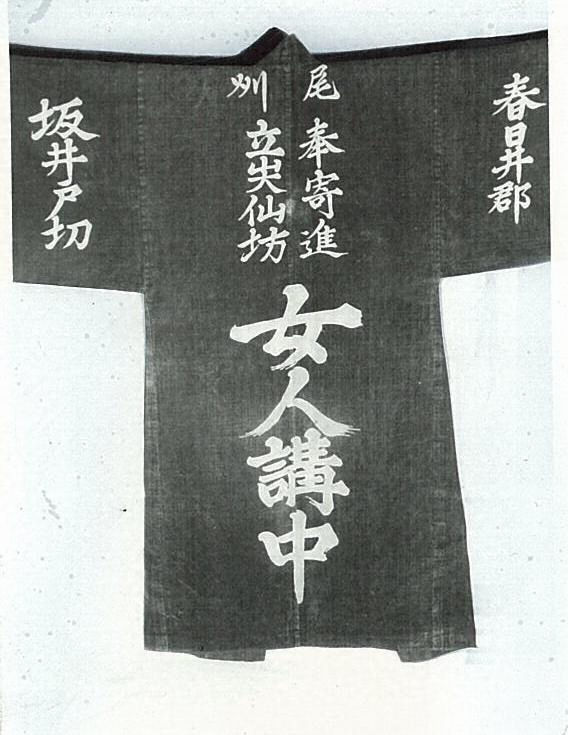 春日井郡
尾州
奉寄進
立山大仙坊
女人講中
坂井戸切